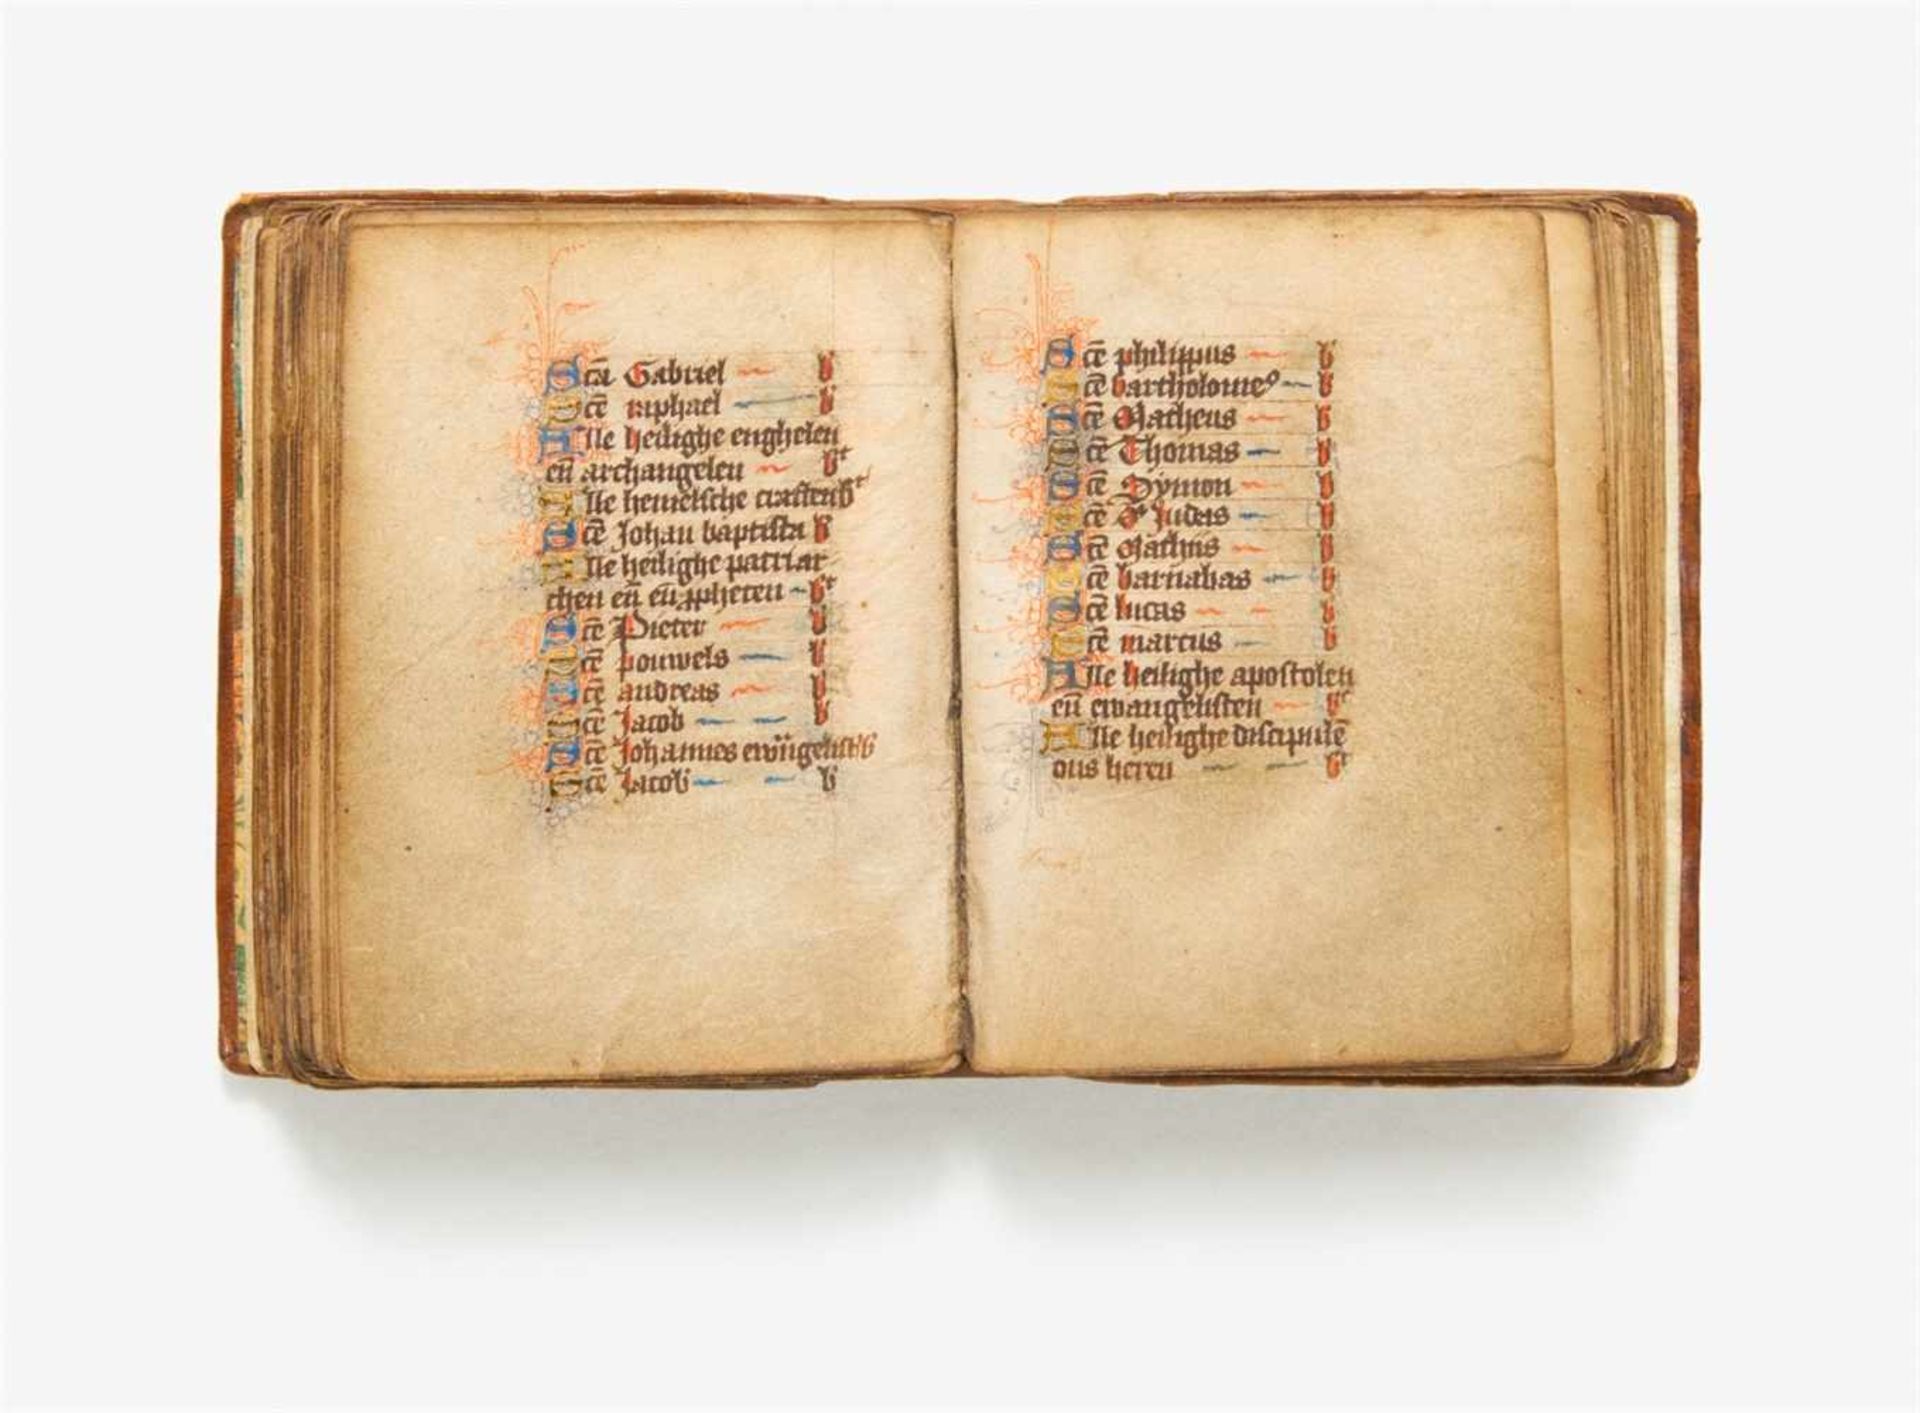 Scā Gabriel b
Scē raphael b
Alle heilighe enghelen
eñ archangelen bt
Alle hemelsche crachten bt
Scē Johan baptista b
Alle heilighe patriar
chen eñ eñ ꝓpheten bt
Scē Pieter b
Scē pouwels b
Scē andreas b
Scē Jacob b
Scē Johannes b
Scē Jacob b
Scē philippus b
Scē bartholomeꝰ b
Scē Matheus b
Scē Thomas b
Scē Symon b
Scē Judas b
Scē Mathijs b
Scē barnabas b
Scē lucas b
Scē marcus b
Alle heilighe apostolen
eñ ewangelisten bt
Alle heilighe discipulē
ons heren bt